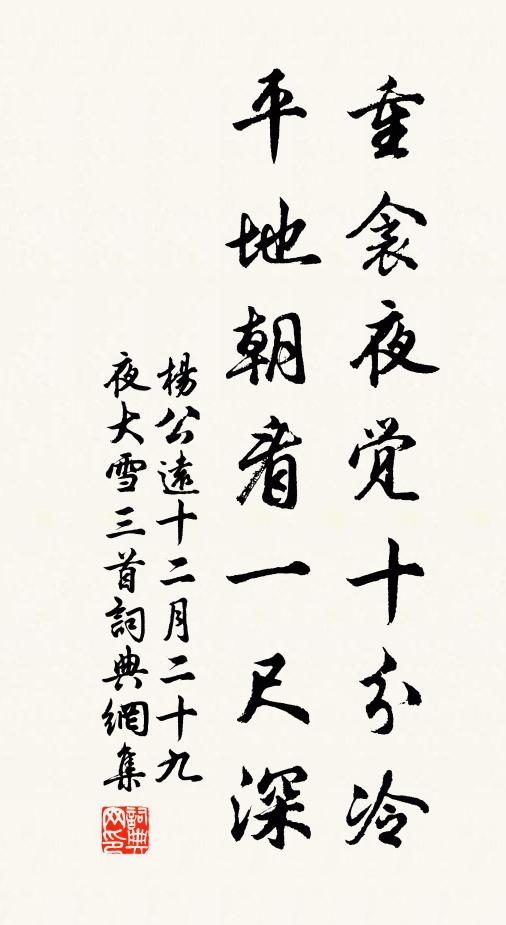 重衾夜觉十分冷
平地朝看一尺深
楊公遠十二月二十九
夜大雪三首詞典網集
詞典
网印